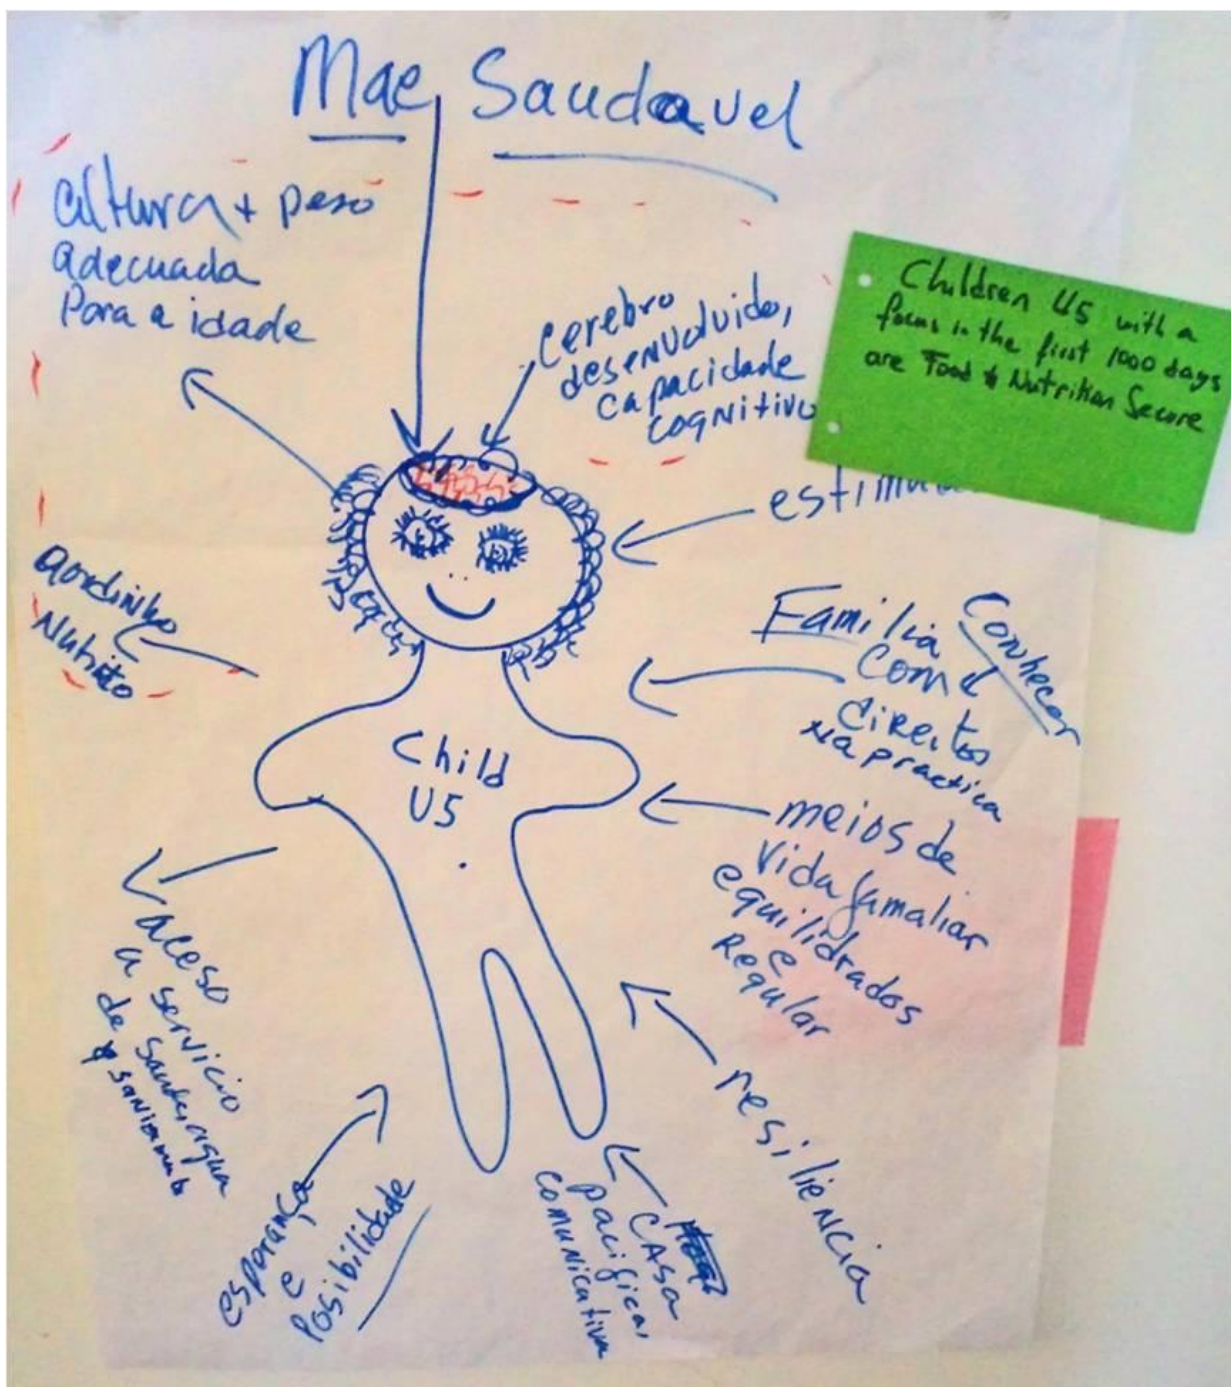 Mae Saudavel
altura + peso
adecuada
Para a idade
cerebro
desenvolvido,
capacidade
cognitivo
Children U5 with a
focus in the first 1000 days
are Food & Nutrition Secure
Gordinho
Nutrito
Familia
com
direitos
na practica
Conhecer
Child
U5
meios de
vida famaliar
equilidrados
e
Regular
aceso
a servicio
de saude, agua
resiliencia
esporança
e
Posibilidade
CASA
pacifica,
comunicativa